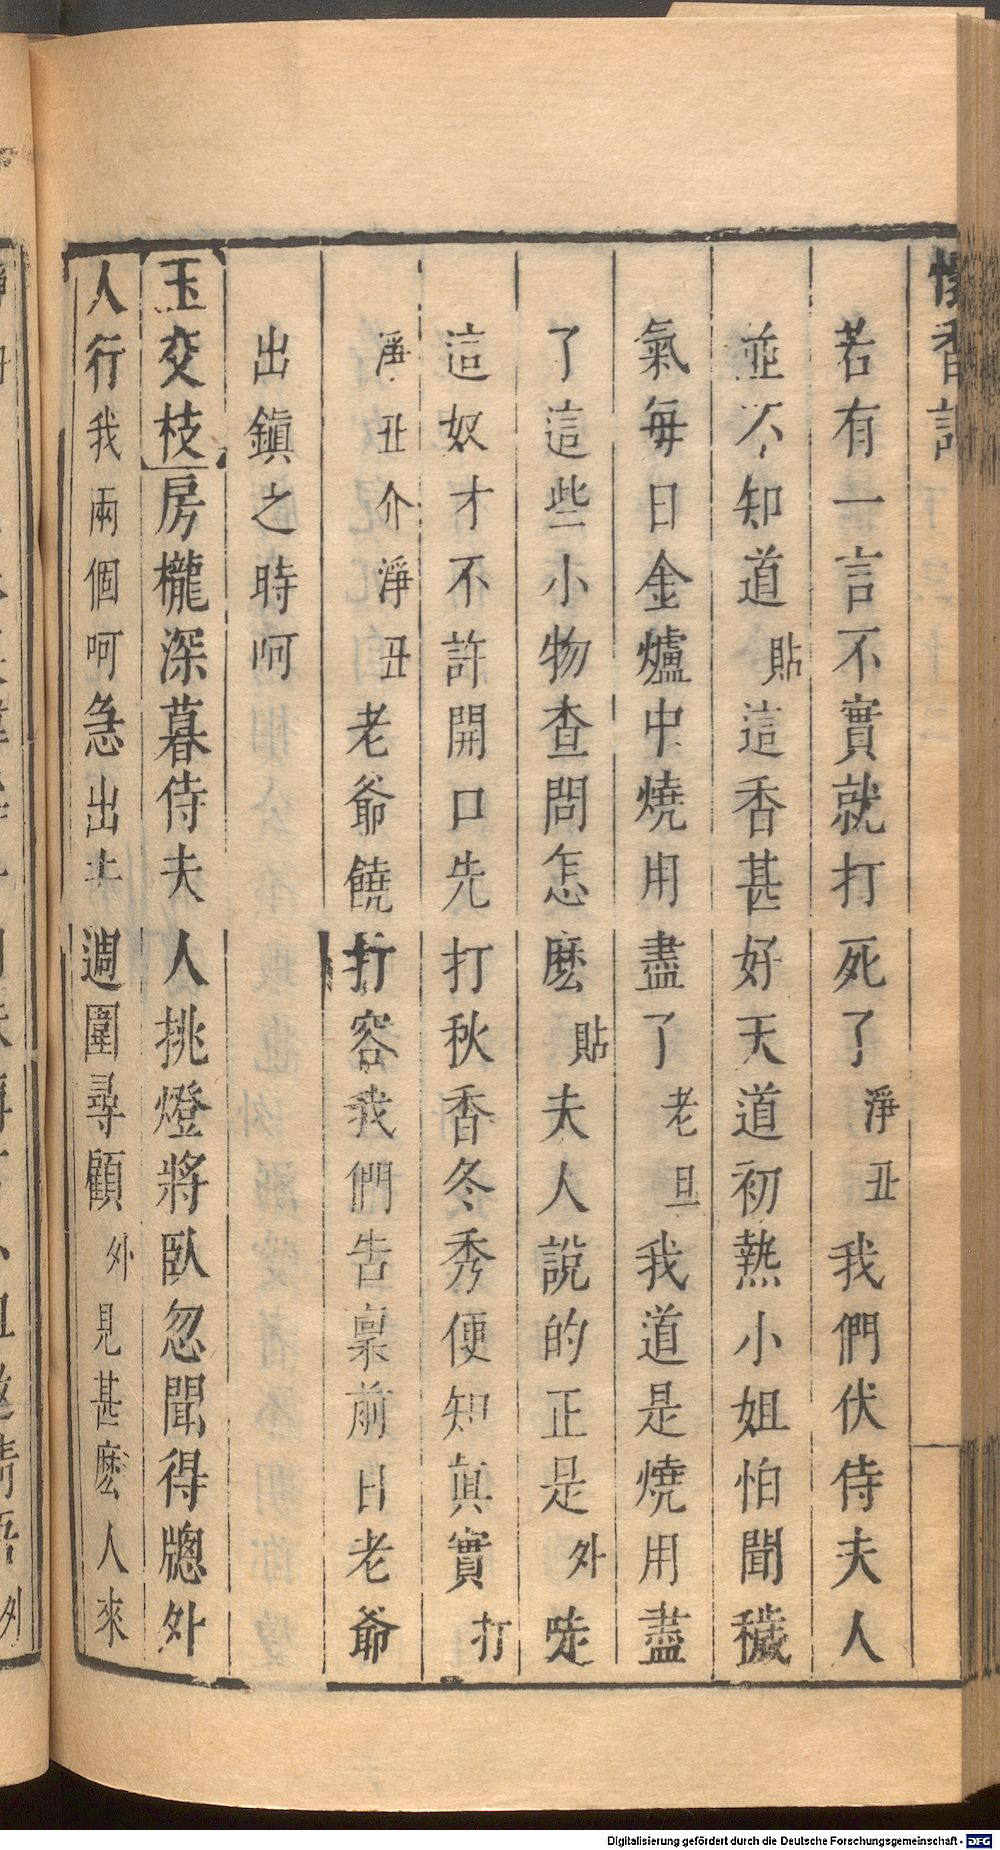 懷香記
若有一言不實就打死了淨丑我們伏侍夫人
並不知道貼這香甚好天道初熱小姐怕聞穢
氣每日金爐中燒用盡了老旦我道是燒用盡
了這些小物查問怎麽貼夫人說的正是外唗
這奴才不許開口先打秋香冬秀便知眞實打
淨丑介淨丑老爺饒打容我們告稟前日老爺
出鎭之時呵
玉交枝房櫳深暮侍夫人挑燈將臥忽聞得牕外
人行我兩個呵急出去週圍尋顧外見甚麽人來
Digitalisierung gefördert durch die Deutsche Forschungsgemeinschaft - DFG